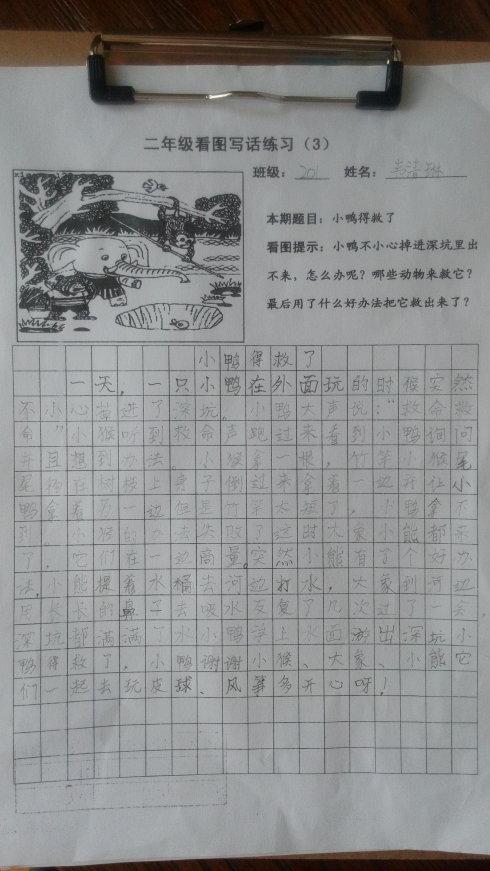 二年级看图写话练习（3）
班级：201 姓名：
本期题目：小鸭得救了
看图提示：小鸭不小心掉进深坑里出
不来，怎么办呢？哪些动物来救它？
最后用了什么好办法把它救出来了？
小鸭得救了
一天，一只小鸭在外面玩的时候突然
不小心掉进了深坑。小鸭大声说：“救命救
命”小猴听到救命声跑过来看到小鸭询问
并且想到办法。小猴拿一根，竹竿小猴尾
尾挂在树枝上身子倒过来拿着一边并让小
鸭拿着另一边但是竹竿太短了，小鸭拿不
到。小猴的办法失败了这时大象小熊都来
了，它们在一边商量。突然小熊有了个好办
法，小熊提着水桶去河边打水，大象到河边
用长长的鼻子去吸水反复了几次过了一会，
深坑都满满了水小鸭浮上水面游出深坑小
鸭得救了，小鸭谢谢小猴、大象、小熊它
们一起去玩皮球、风筝多开心呀！